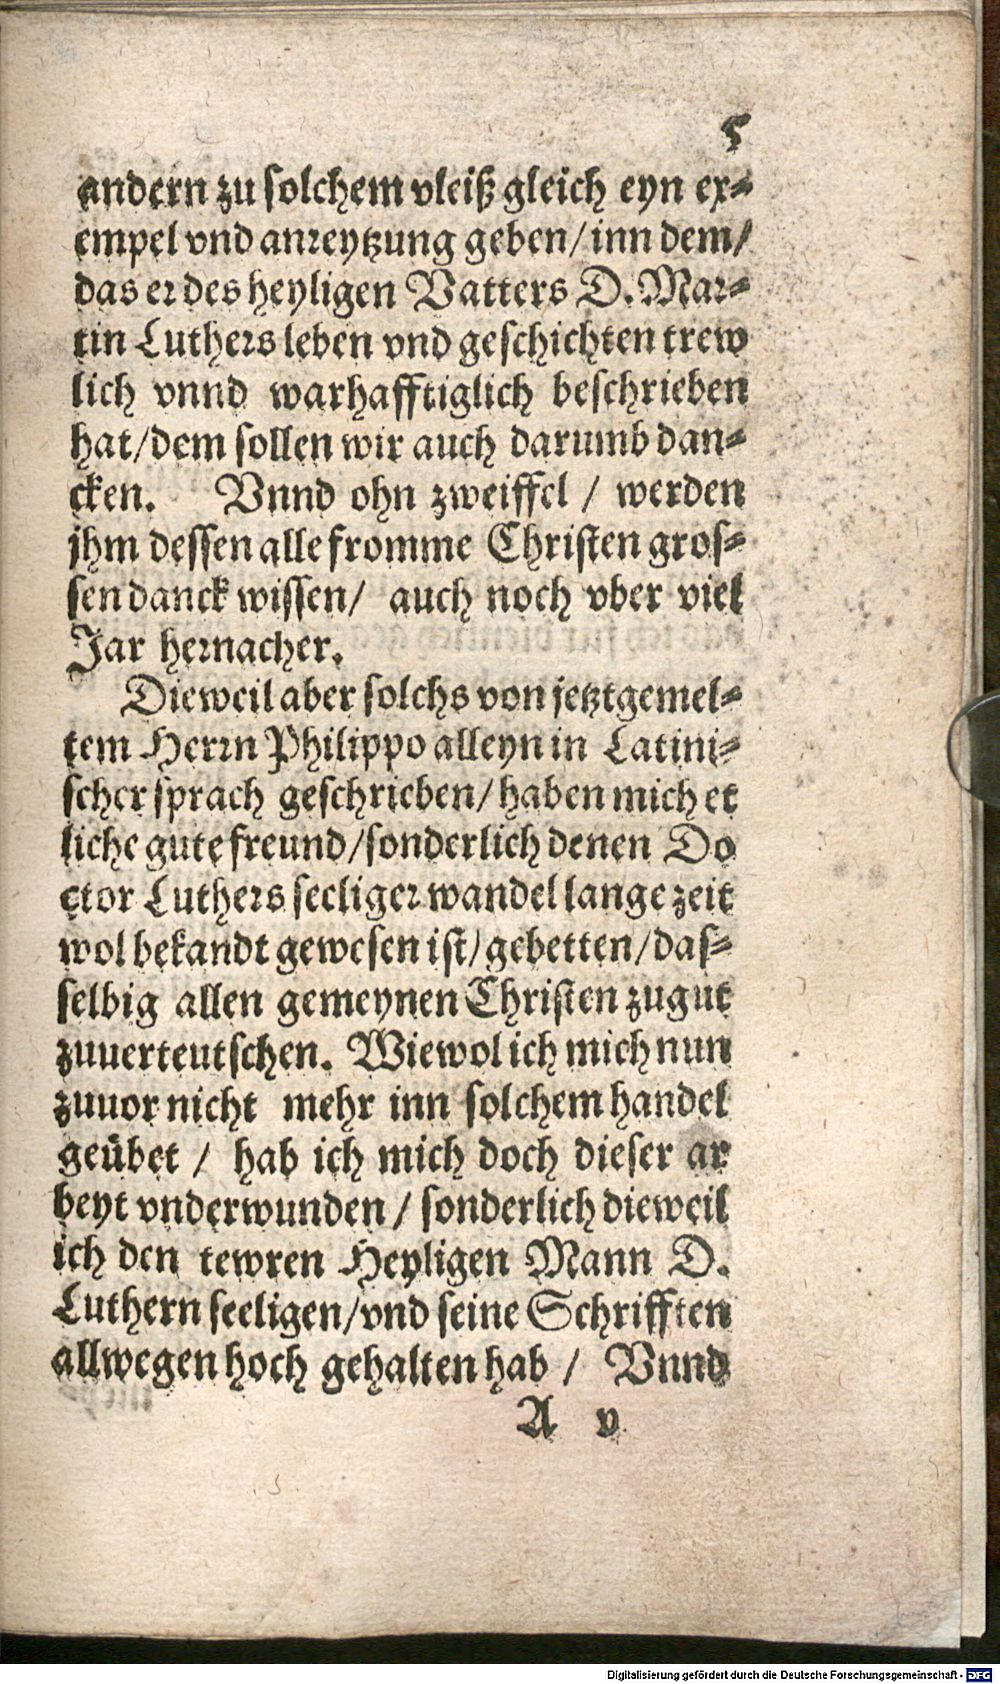 5
andern zu solchem vleiß gleich eyn ex-
empel vnd anreytzung geben/inn dem/
das er des heyligen Vatters D. Mar-
tin Luthers leben vnd geschichten trew
lich vnnd warhafftiglich beschrieben
hat/dem sollen wir auch darumb dan-
cken. Vnnd ohn zweiffel / werden
jhm dessen alle fromme Christen gros-
sen danck wissen/ auch noch vber viel
Jar hernacher.
Dieweil aber solchs von jetztgemel-
tem Herrn Philippo alleyn in Latini-
scher sprach geschrieben/haben mich et
liche gute freund/sonderlich denen Do
ctor Luthers seeliger wandel lange zeit
wol bekandt gewesen ist/gebetten/das-
selbig allen gemeynen Christen zugut
zuuerteutschen. Wiewol ich mich nun
zuuor nicht mehr inn solchem handel
geübet / hab ich mich doch dieser ar
beyt vnderwunden / sonderlich dieweil
ich den tewren Heyligen Mann D.
Luthern seeligen/vnd seine Schrifften
allwegen hoch gehalten hab / Vnnd
A v
Digitalisierung gefördert durch die Deutsche Forschungsgemeinschaft - DFG